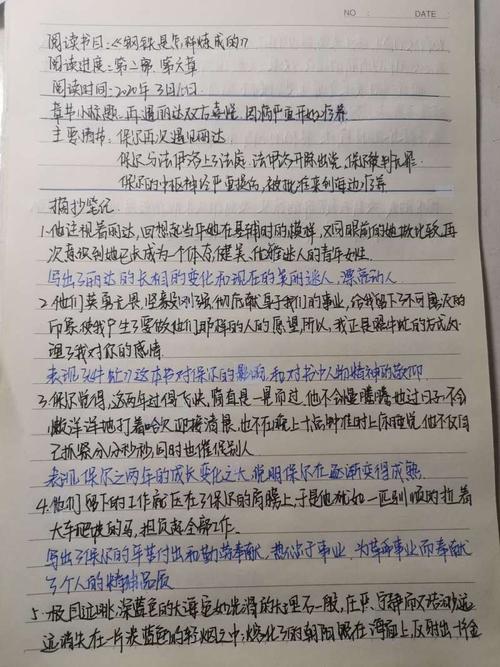 NO : DATE :
阅读书目:《钢铁是怎样炼成的》
阅读进度:第二部 第六章
阅读时间:2020年3月11日
章节小标题:再遇丽达双方喜悦 因病严重开始疗养
主要情节:保尔再次遇见丽达
保尔与法伊洛上了法庭 法伊洛开除出党,保尔被判无罪
保尔的中枢神经严重损伤,被批准来到海边疗养
摘抄笔记
1.他注视着丽达,回想起当年她在县辅时的模样,又同眼前的她做比较,再
次意识到她已长成为一个体态健美、优雅迷人的青年女性
写出了丽达的长相的变化和现在的美丽迷人,漂亮动人
2.他们英勇无畏,坚毅刚强,彻底献身于我们的事业,给我留下了不可磨灭的
印象,使我产生了要做他们那样的人的愿望,所以,我正是照牛虻的方式处
理了我对你的感情
表现了《牛虻》这本书对保尔的影响,和对书中人物精神的敬仰
3.保尔觉得,这两年过得飞快,简直是一晃而过,他不会慢腾腾地过日子,不会
懒洋洋地打着哈欠迎接清晨,也不在晚上十点钟准时上床睡觉,他不仅自
己抓紧分分秒秒,同时也催促别人
表现保尔这两年的成长变化之大,说明保尔在逐渐变得成熟
4.他们留下的工作就压在了保尔的肩膀上,于是他就如一匹驯顺的拉着
大车爬坡的马,担负起全部工作。
写出了保尔的辛苦付出和勤劳奉献,热心于事业,为革命事业而奉献
了个人的精神品质
5.极目远眺,深蓝色的大海宛如光滑的大理石一般,庄严、宁静而又浩渺,远
远消失在一片淡蓝色的轻烟之中;熔化了的朝阳照在海面上,反射出一片金